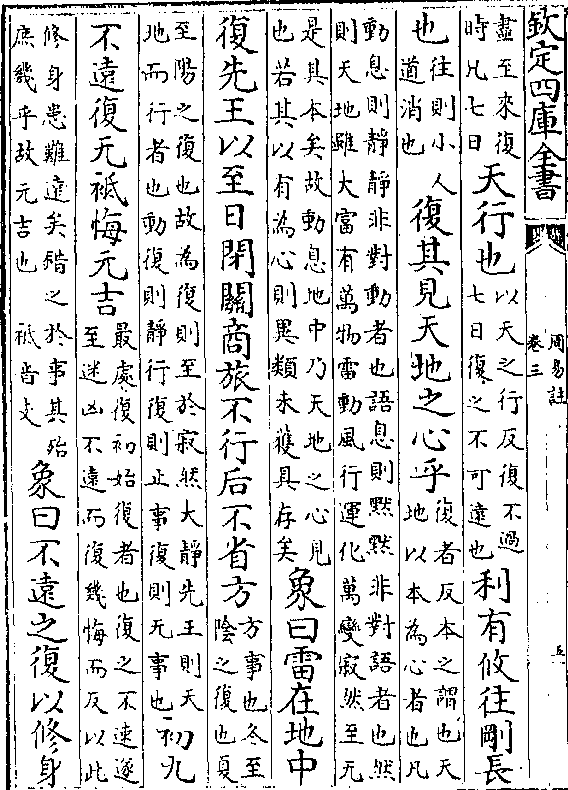 欽定四庫全書
周易註
卷三
五
盡至來復
時凡七日
天行也
以天之行反復不過
七日復之不可遠也
利有攸往剛長
也
往則小人
道消也
復其見天地之心乎
復者反本之謂也天
地以本為心者也凡
動息則靜靜非對動者也語息則黙黙非對語者也然
則天地雖大富有萬物雷動風行運化萬變寂然至无
是其本矣故動息地中乃天地之心見
也若其以有為心則異類未獲具存矣
象曰雷在地中
復先王以至日閉關商旅不行后不省方
方事也冬至
陰之復也夏
至陽之復也故為復則至於寂然大靜先王則天
地而行者也動復則靜行復則止事復則无事也
初九
不遠復无祗悔元吉
最處復初始復者也復之不速遂
至迷凶不遠而復幾悔而反以此
修身患難遠矣錯之於事其殆
庶幾乎故元吉也 祗音支
象曰不遠之復以修身